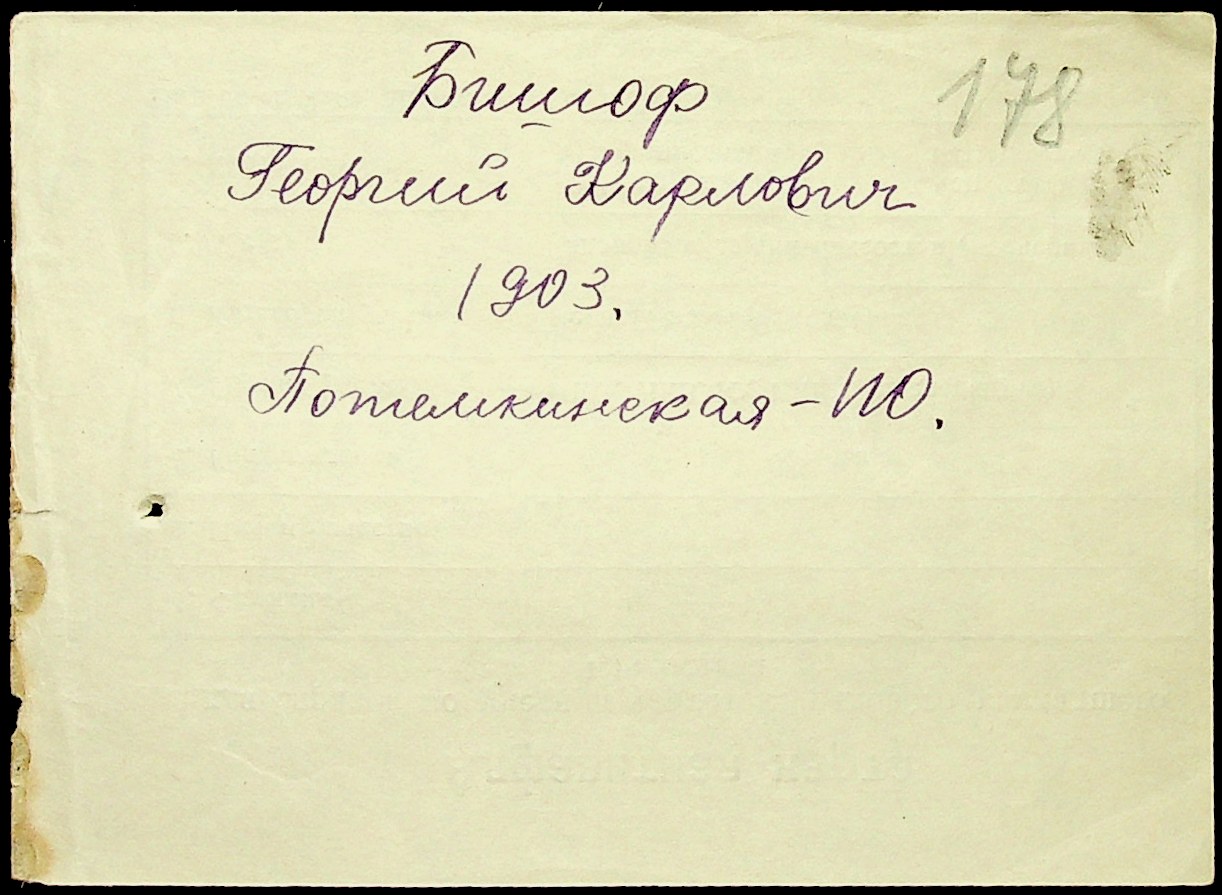 Бишоф
178
Георгий Карлович
1903.
Потемкинская - 110.